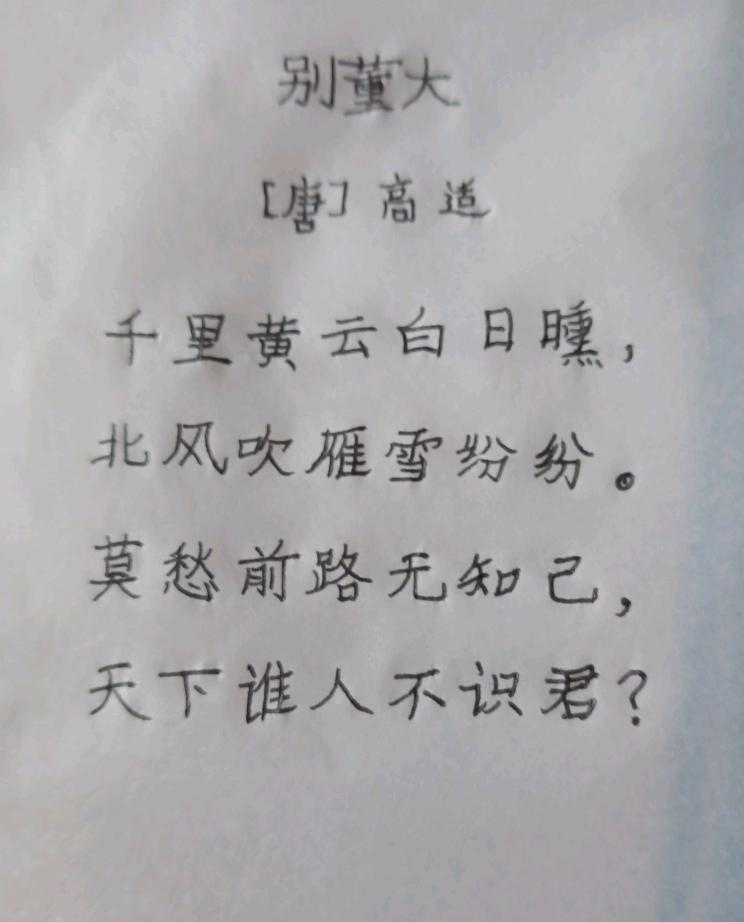 别董大
[唐] 高适
千里黄云白日曛，
北风吹雁雪纷纷。
莫愁前路无知己，
天下谁人不识君？